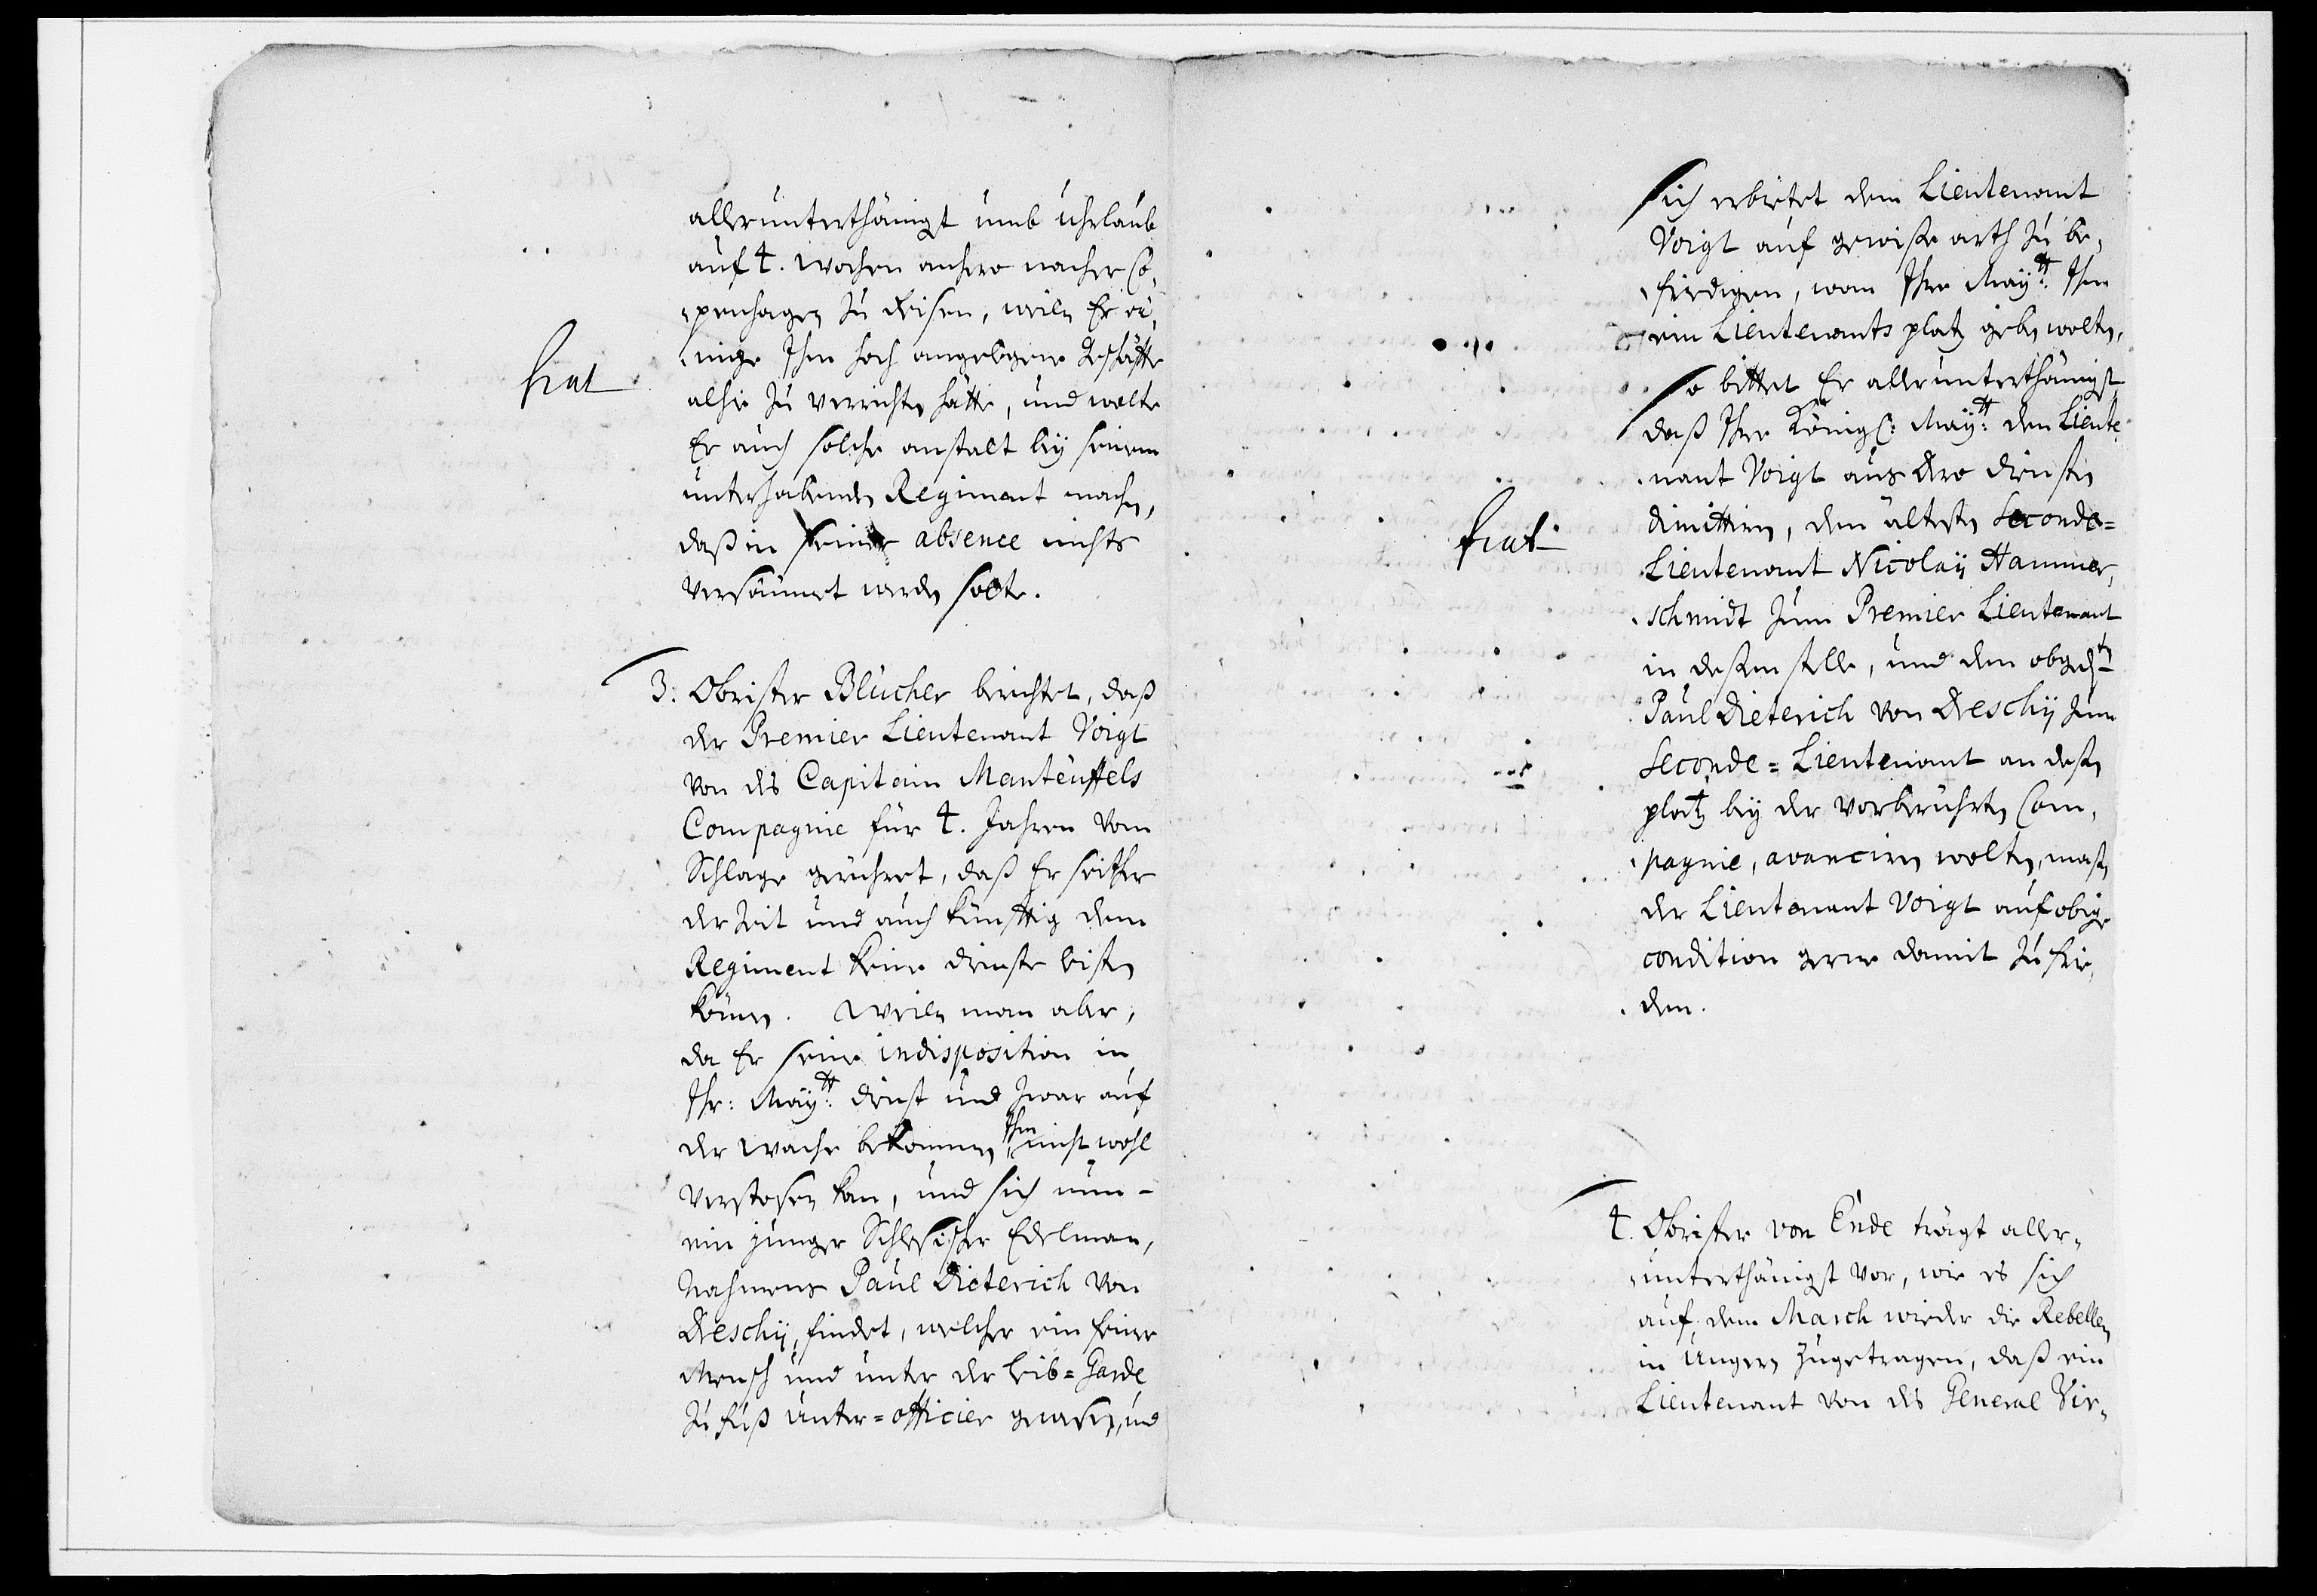 allerunterthänigst umb Uhrlaub
auf 4. Wochen anhero nacher Co-
penhagen zu Reisen, weiln Er ei-
nige Ihm hoch angelegene Geschäffte
fiat
alhie zu verrichten hätte, und wolte
Er auch solche anstalt bey seinem
unterhabenden Regiment machen,
daß in seiner absence nichts
versäumet werden solte.
3. Obrister Blücher berichtet, daß
der Premier Lieutenant Voigt
von des Capitain Manteuffels
Compagnie für 4. Jahren vom
Schlage gerühret, daß Er seither
der Zeit und auch künfftig dem
Regiment keine dienste leisten
können. Weiln man aber,
da Er seine indisposition in
Ihr: Maytt: dienst und zwar auf
der wache bekommen, Ihn nicht wohl
verstosen kan, und sich nun-
ein junger Schlesischer Edelman,
Nahmens Paul Dieterich von
Dreschy, findet, welcher ein feiner
Mensch und unter der Leib-Garde
zu Fuß Unter-officier gewesen, und
sich erbietet dem Lieutenant
Voigt auf gewisse arth zu be-
friedigen, wan Ihre Maytt: Ihm
ein Lieutenants platz geben wolten,
So bittet Er allerunterthänigst
daß Ihre Königl: Maytt: den Lieute-
nant Voigt aus Dero diensten
dimittiren, den ältesten Seconde-
fiat
Lieutenant Nicolay Hammer-
schmidt zum Premier Lieutenant
in dessen stelle, und den obgedten
Paul Dieterich von Dreschy zum
Seconde-Lieutenant an dessen
platz bey der vorberührten Com-
pagnie, avanciren wolten, massen
der Lieutenant Voigt auf obige
condition gerne damit zu frie-
den.
4. Obrister von Ende trägt aller-
unterthänigst vor, wie es sich
auf dem March wieder die Rebellen
in Ungern zugetragen, daß ein
Lieutenant von des General Vir-